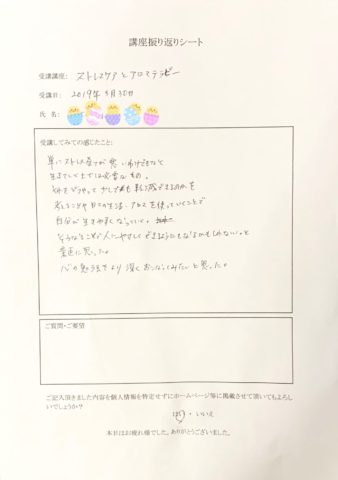 講座振り返りシート
受講講座: ストレスケアとアロマテラピー
受講日: 2019年5月30日
氏 名:
受講してみての感じたこと:
単にストレス全てが悪いわけでもなく
生きていく上では必要なもの。
それをどうやって少しでも軽減できるのかを
考えることや日々の生活、アロマを使っていくことで
自分が生きやすくなっていく。
そうなることで人にやさしくできるようにもなるかもしれないと
素直に思った。
心の勉強をより深くおこなってみたいと思った。
ご質問・ご要望
ご記入頂きました内容を個人情報を特定せずにホームページ等に掲載させて頂いてもよろし
いでしょうか？
はい・いいえ
本日はお疲れ様でした。ありがとうございました。